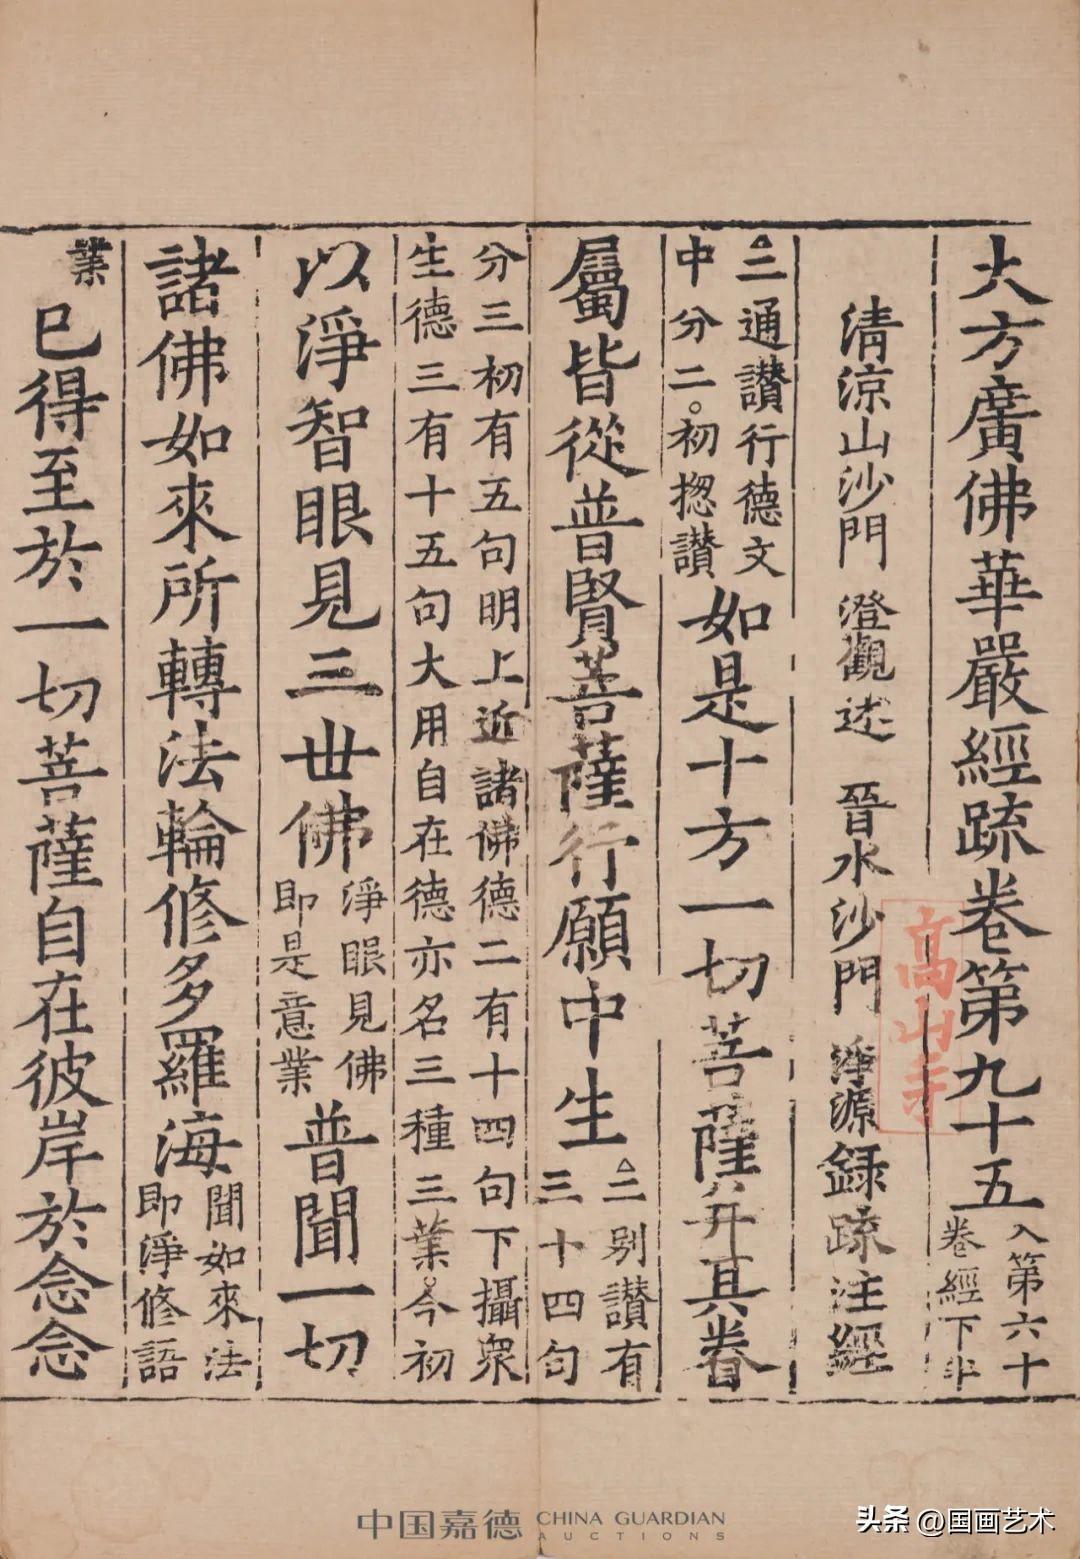 大方廣佛華嚴經䟽卷第九十五
入第六十
卷經下半
清涼山沙門 澄觀述 晉水沙門 淨源録䟽注經
高山寺
三通讃行德文
中分二初揔讃
如是十方一切菩薩并其眷
屬皆從普賢菩薩行願中生
二别讃有
三十四句
分三初有五句明上近諸佛德二有十四句下攝衆
生德三有十五句大用自在德亦名三種三業今初
以淨智眼見三世佛
淨眼見佛
即是意業
普聞一切
諸佛如來所轉法輪修多羅海
聞如來法
即淨修語
業
已得至於一切菩薩自在彼岸於念念
中国嘉德 CHINA GUARDIAN
AUCTIONS
头条 @国画艺术